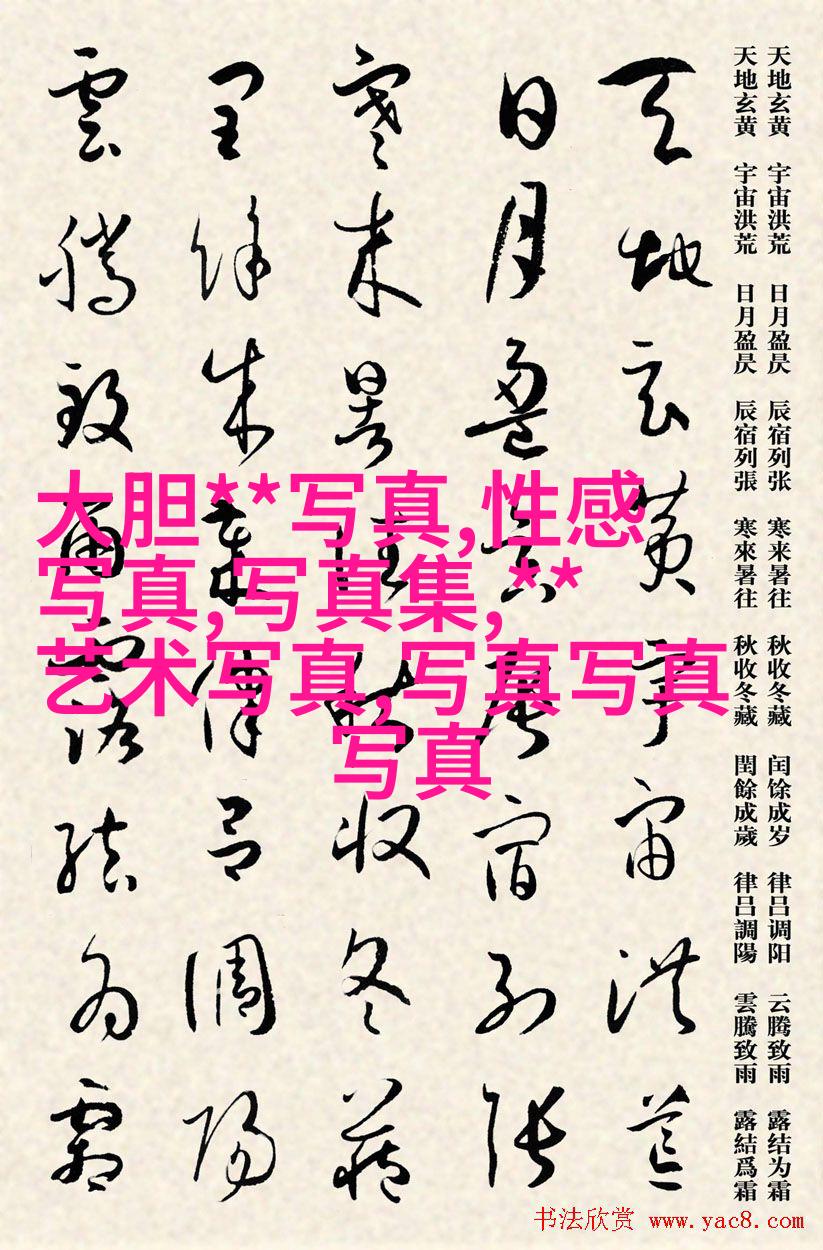 天地玄黄 宇宙洪荒 日月盈昃 辰宿列张 寒来暑往 秋收冬藏 闰馀成岁 律吕调阳 云腾致雨 露结为霜
天地玄黄 宇宙洪荒 日月盈昃 辰宿列張 寒來暑往 秋收冬藏 閏餘成歲 律吕調陽 雲騰致雨 露結爲霜
天地玄黄宇宙洪荒
日月盈昃辰宿列張
寒来暑往秋收冬藏
閏餘成歲律吕調陽
雲騰致雨露結為霜
大胆**写真,性感
写真,写真集,**
艺术写真,写真写真
写真
书法欣赏 www.yac8.com